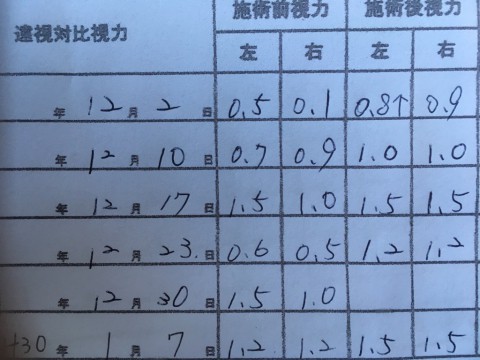 遠視対比視力 施術前視力 施術後視力
左 右 左 右
年 12月 2日 0.5 0.1 0.8↑ 0.9
年 12月 10日 0.7 0.9 1.0 1.0
年 12月 17日 1.5 1.0 1.5 1.5
年 12月 23日 0.6 0.5 1.2 1.2
年 12月 30日 1.5 1.0
H30年 1月 7日 1.2 1.2 1.5 1.5